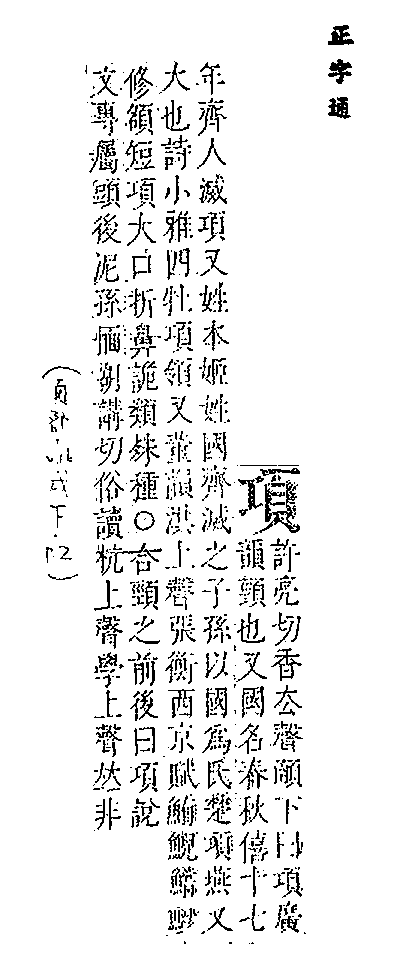 正字通
項
許亮切香去聲頤下曰項廣
韻頸也又國名春秋僖十七
年齊人滅項又姓本姬姓國齊滅之子孫以國爲氏楚項燕又
大也詩小雅四牡項領又董韻洪上聲張衡西京賦鮪鯢鱨魦
修額短項大口折鼻詭類殊種○合頸之前後曰項說
文專屬頭後泥孫愐胡講切俗讀杭上聲學上聲𠀤非
(頁部 戌下.12)